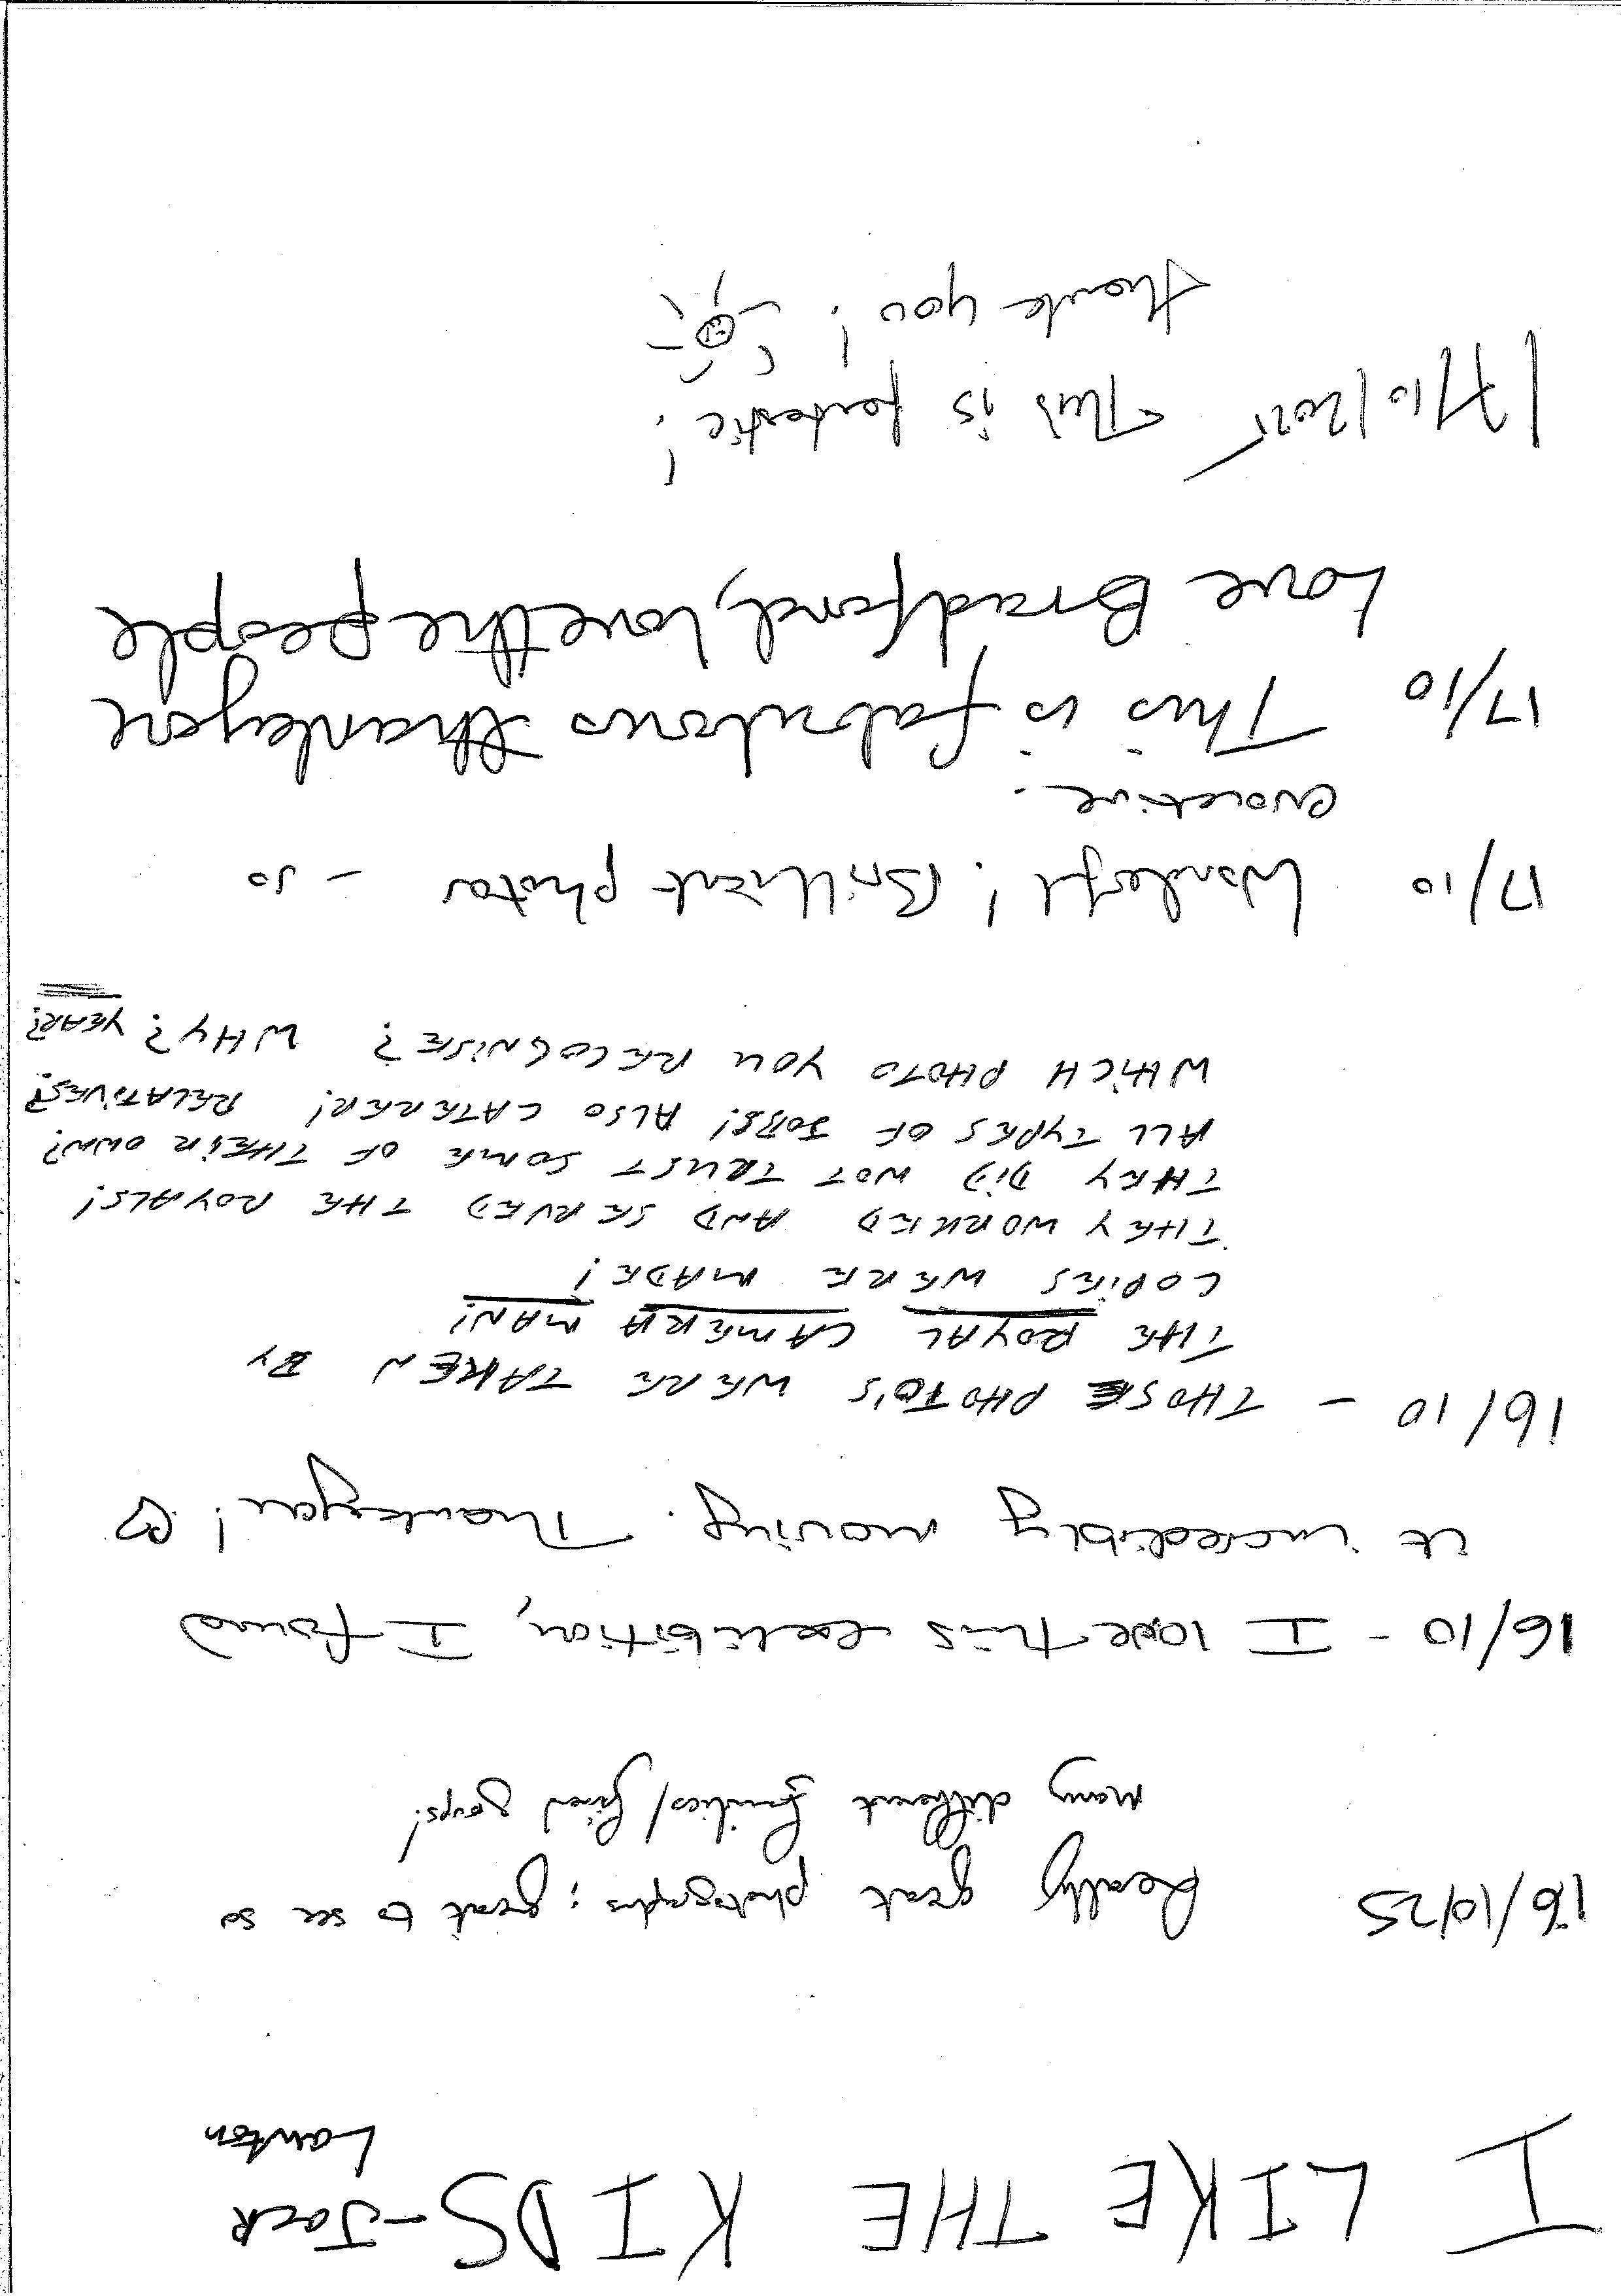 I LIKE THE KIDS - Jack
Lawton
16/10/25 Really great photographs; great to see so
many different families/friend groups!
16/10 - I love this exhibition, I found
it incredibly moving. Thankyou! ♡
16/10 - THOSE PHOTO'S WERE TAKEN BY
THE ROYAL CAMERA MAN!
COPIES WERE MADE!
THEY WORKED AND SERVED THE ROYALS!
THEY DID NOT TRUST SOME OF THEIR OWN?
ALL TYPES OF JOBS! ALSO CATERER! RELATIVES?
WHICH PHOTO YOU RECOGNISE? WHY? YEAR?
17/10 Wonderful! Brilliant photos - so
evocative.
17/10 This is fabulous thankyou
Love Bradford, love the people
17/10/2025 This is fantastic!
thank you!